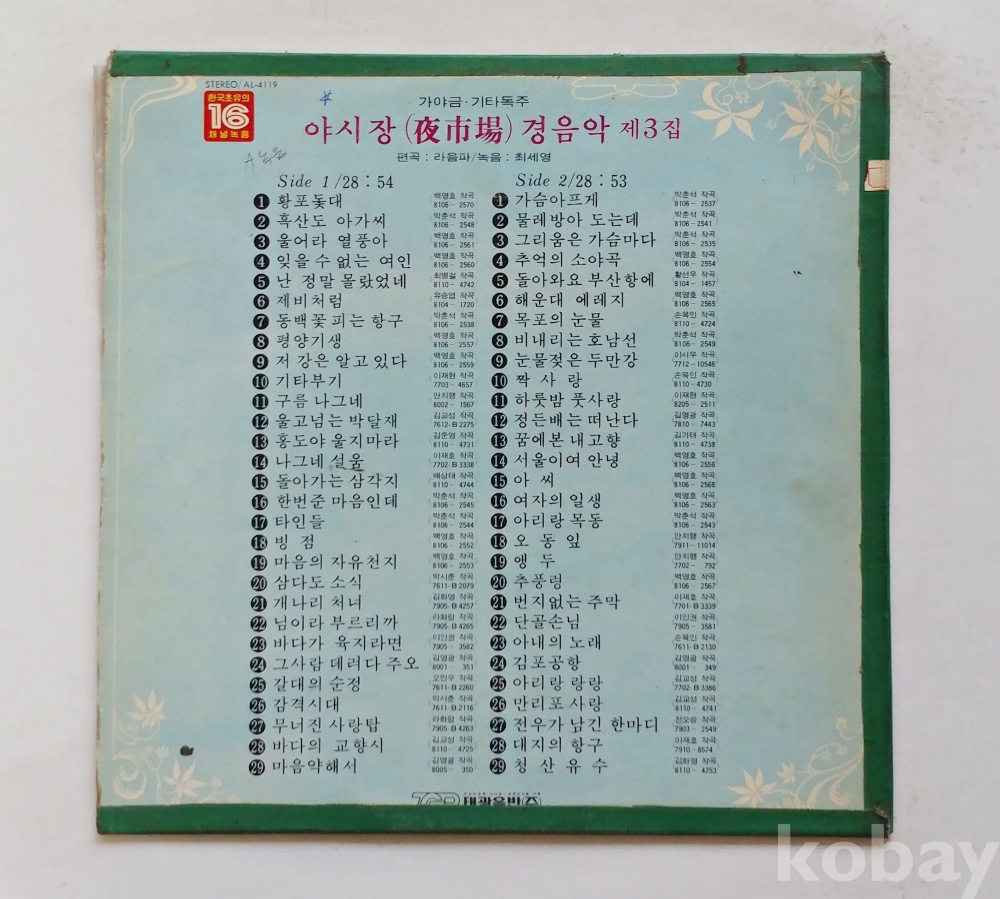 STEREO/AL-4119
한국초유의
16
채널녹음
가야금·기타독주
야시장(夜市場)경음악 제3집
편곡 : 라음파/녹음 : 최세영
Side 1/28 : 54
1 황포돛대 백영호 작곡 8106-2570
2 흑산도 아가씨 박춘석 작곡 8106-2548
3 울어라 열풍아 백영호 작곡 8106-2561
4 잊을 수 없는 여인 백영호 작곡 8106-2560
5 난 정말 몰랐었네 최병걸 작곡 8110-4742
6 제비처럼 유승엽 작곡 8104-1720
7 동백꽃 피는 항구 박춘석 작곡 8106-2538
8 평양기생 백영호 작곡 8106-2557
9 저 강은 알고 있다 백영호 작곡 8106-2559
10 기타부기 이재현 작곡 7703-4657
11 구름 나그네 안치행 작곡 8002-1567
12 울고넘는 박달재 김교성 작곡 7612-B 2275
13 홍도야 울지마라 김준영 작곡 8110-4731
14 나그네 설움 이재호 작곡 7702-B 3338
15 돌아가는 삼각지 배상태 작곡 8110-4744
16 한번준 마음인데 박춘석 작곡 8106-2545
17 타인들 박춘석 작곡 8106-2544
18 빙 점 백영호 작곡 8106-2552
19 마음의 자유천지 백영호 작곡 8106-2553
20 삼다도 소식 박시춘 작곡 7611-B 2079
21 개나리 처녀 김화영 작곡 7905-B 4257
22 님이라 부르리까 라화랑 작곡 7905-B 4265
23 바다가 육지라면 이인권 작곡 7905-3582
24 그사람 데려다 주오 김영광 작곡 8001-351
25 갈대의 순정 오민우 작곡 7611-B 2260
26 감격시대 박시춘 작곡 7611-B 2116
27 무너진 사랑탑 라화랑 작곡 7905-B 4263
28 바다의 교향시 김교성 작곡 8110-4725
29 마음약해서 김영광 작곡 8005-350
Side 2/28 : 53
1 가슴아프게 박춘석 작곡 8106-2537
2 물레방아 도는데 박춘석 작곡 8106-2541
3 그리움은 가슴마다 박춘석 작곡 8106-2535
4 추억의 소야곡 백영호 작곡 8106-2554
5 돌아와요 부산항에 황선우 작곡 8104-1457
6 해운대 에레지 백영호 작곡 8106-2565
7 목포의 눈물 손목인 작곡 8110-4724
8 비내리는 호남선 박춘석 작곡 8106-2549
9 눈물젖은 두만강 이시우 작곡 7712-10546
10 짝 사 랑 손목인 작곡 8110-4730
11 하룻밤 풋사랑 이재현 작곡 8205-2511
12 정든배는 떠난다 김영광 작곡 7810-7443
13 꿈에본 내고향 김기태 작곡 8110-4738
14 서울이여 안녕 백영호 작곡 8106-2556
15 아 씨 백영호 작곡 8106-2566
16 여자의 일생 백영호 작곡 8106-2563
17 아리랑 목동 박춘석 작곡 8106-2543
18 오 동 잎 안치행 작곡 7911-11014
19 앵 두 안치행 작곡 7702-792
20 추풍령 백영호 작곡 8106-2567
21 번지없는 주막 이재호 작곡 7701-B 3339
22 단골손님 이인권 작곡 7905-3581
23 아내의 노래 손목인 작곡 7611-B 2130
24 김포공항 김영광 작곡 8001-349
25 아리랑 랑랑 김교성 작곡 7702-B 3386
26 만리포 사랑 김교성 작곡 8110-4741
27 전우가 남긴 한마디 전오승 작곡 7903-2549
28 대지의 항구 이재호 작곡 7910-8574
29 청 산 유 수 김화영 작곡 8110-4753
태광음반(주)
kobay